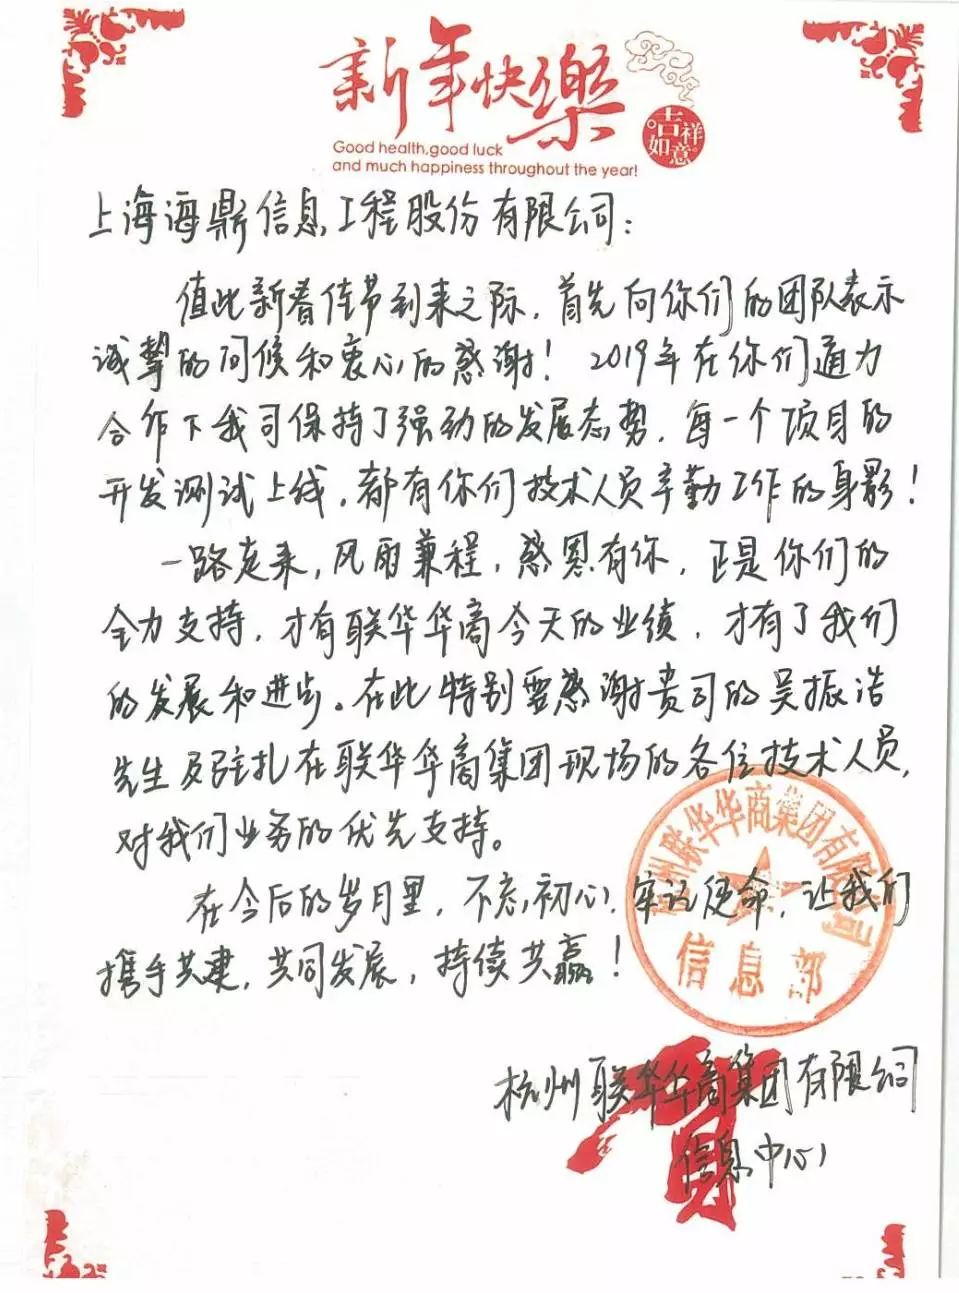 新年快樂
吉祥
如意
Good health,good luck
and much happiness throughout the year!
上海海鼎信息工程股份有限公司:
值此新春佳节到来之际，首先向你们的团队表示
诚挚的问候和衷心的感谢！2019年在你们通力
合作下我司保持了强劲的发展态势，每一个项目的
开发测试上线，都有你们技术人员辛勤工作的身影！
一路走来，风雨兼程，感恩有你，正是你们的
全力支持，才有联华华商今天的业绩，才有了我们
的发展和进步。在此特别要感谢贵司的吴振浩
先生及驻扎在联华华商集团现场的各位技术人员，
对我们业务的优先支持。
在今后的岁月里，不忘初心，牢记使命，让我们
携手共建，共同发展，持续共赢！
杭州联华华商集团有限公司
信息部
杭州联华华商集团有限公司
信息中心
贺